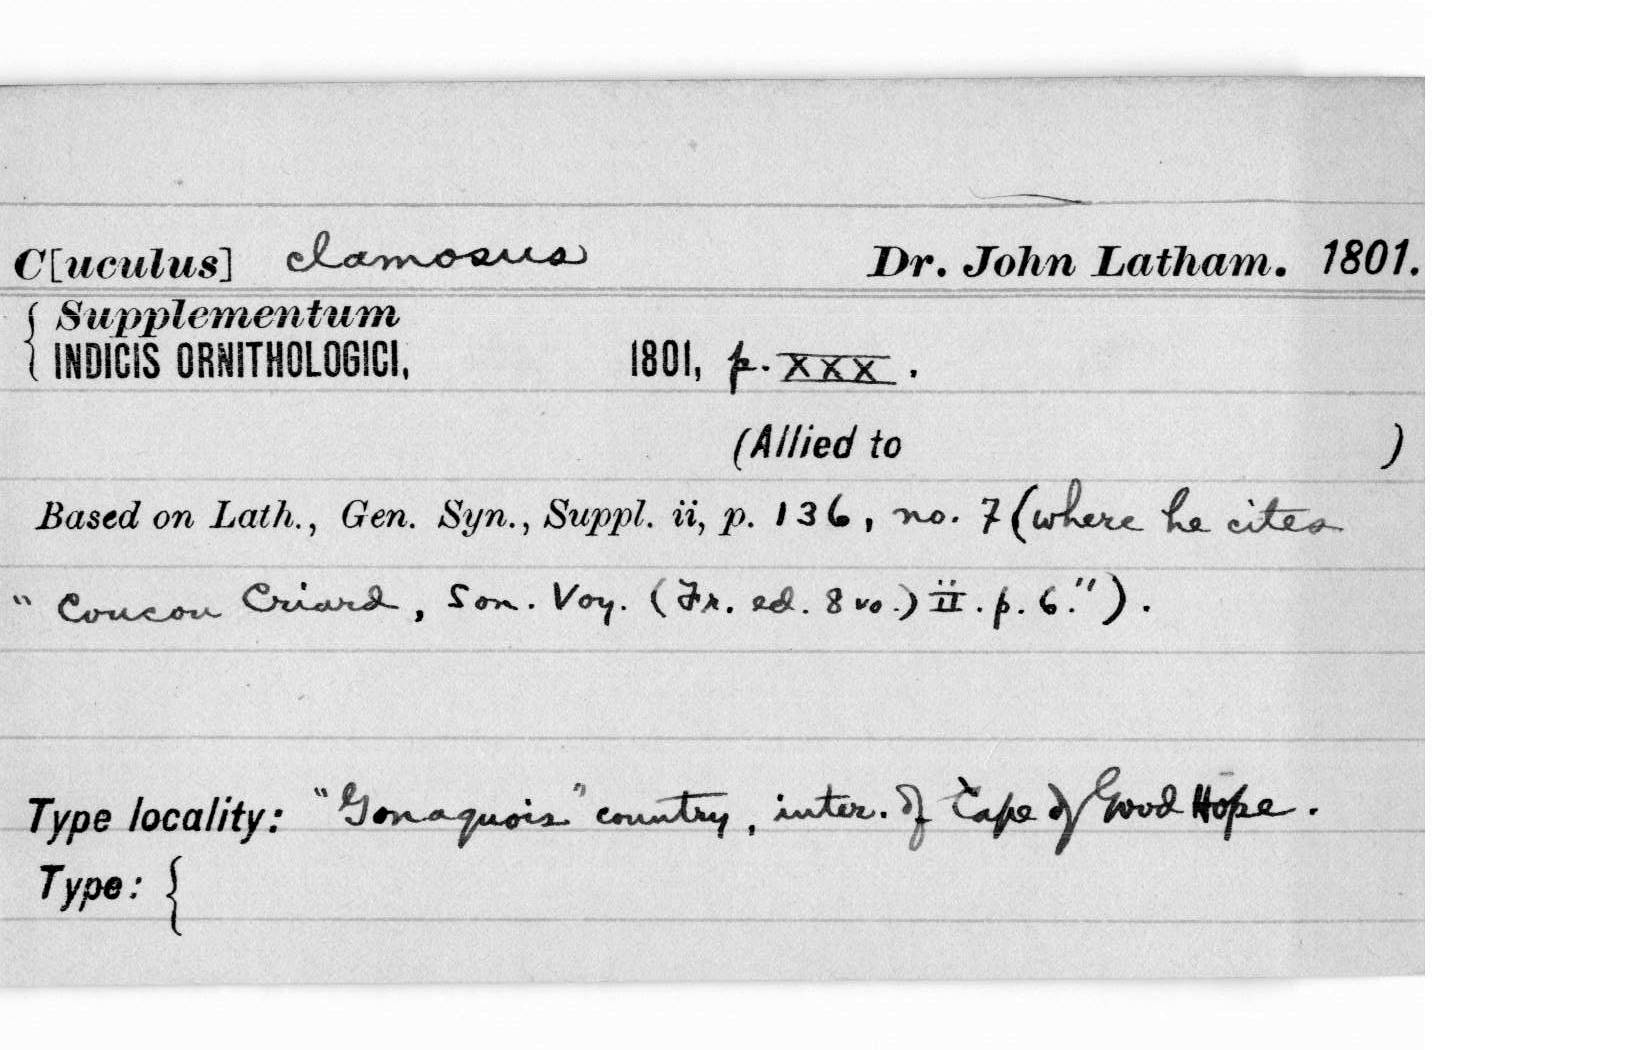 C[uculus] clamosus Dr. John Latham. 1801.
{ Supplementum
INDICIS ORNITHOLOGICI, 1801, p. XXX.
(Allied to )
Based on Lath., Gen. Syn., Suppl. ii, p. 136, no. 7 (where he cites
"Coucou Criard, Son. Voy. (Fr. ed. 8vo.) ii. p. 6.").
Type locality: "Gonaquois" country, inter. of Cape of Good Hope.
Type: {